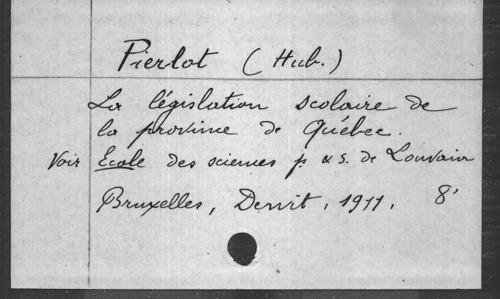 Pierlot (Hub.)
La législation scolaire de
la province de Québec.
Voir Ecole des sciences p. & s. de Louvain
Bruxelles, Dewit, 1911, 8°